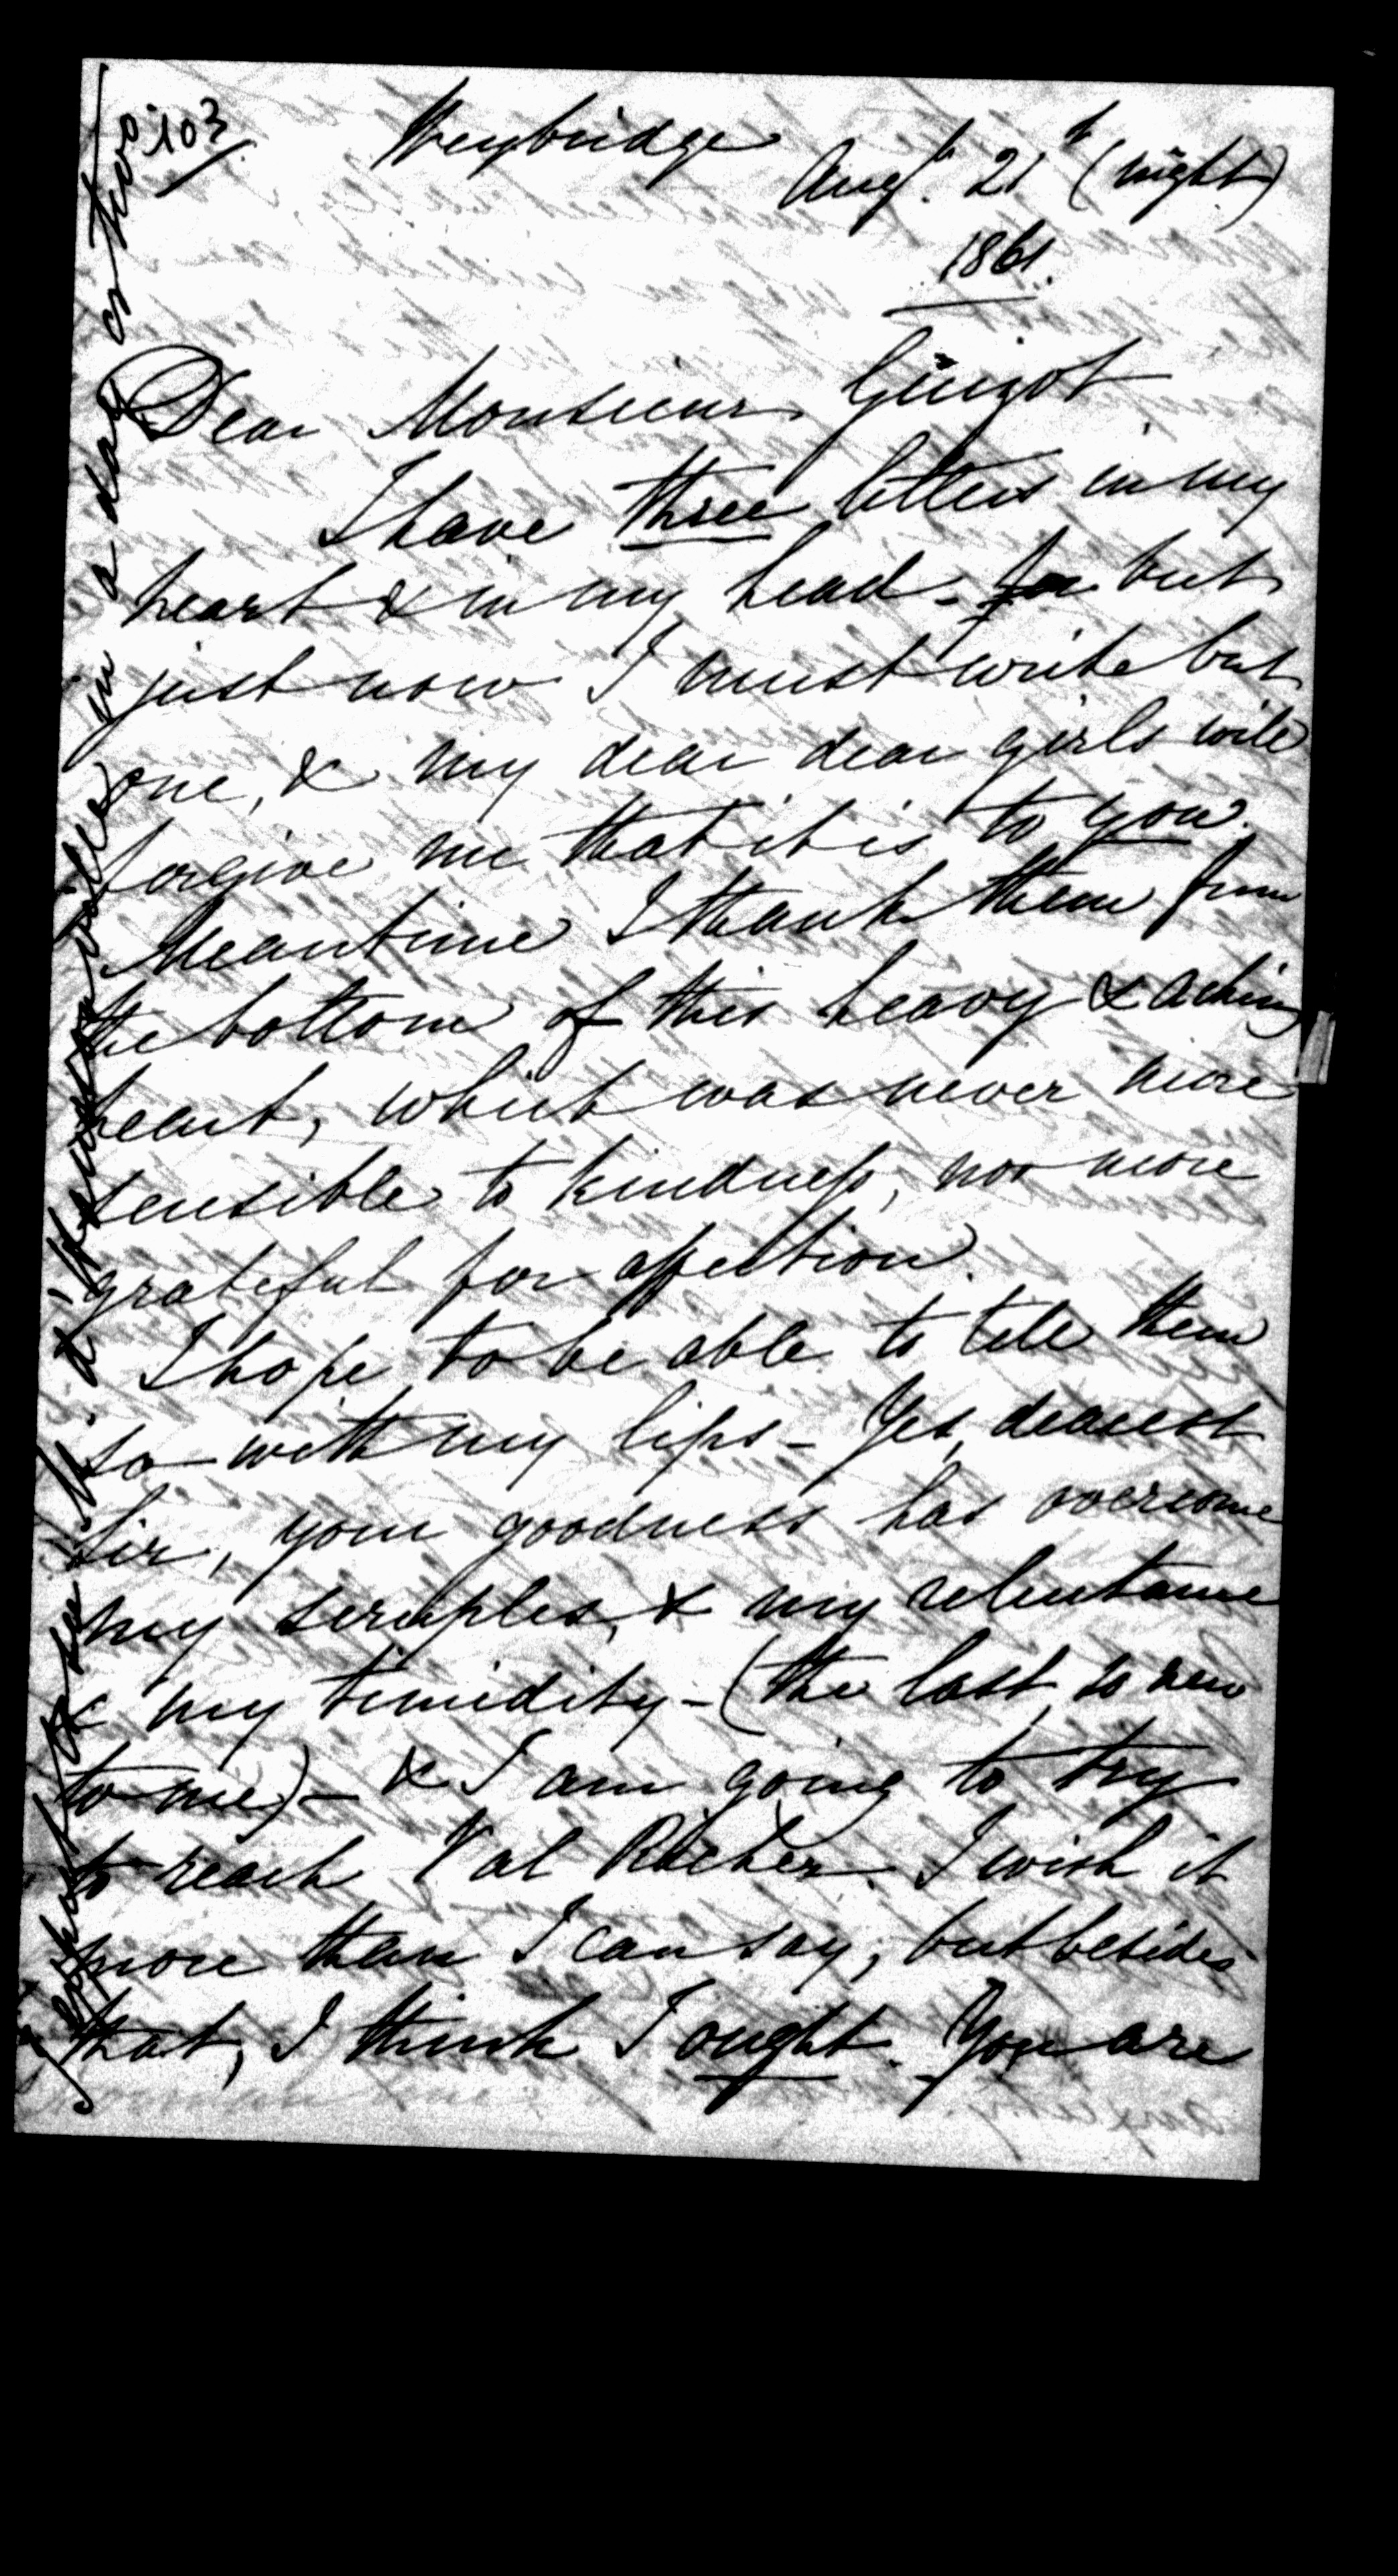 103
Weybridge
Aug. 21st (night)
1861.
Dear Monsieur Guizot
I have three letters in my
heart & in my head - for but
just now I must write but
one, & my dear dear girls will
forgive me that it is to you.
Meantime I thank them from
the bottom of this heavy & aching
heart, which was never more
sensible to kindness, nor more
grateful for affection.
I hope to be able to tell them
so with my lips - Yes, dearest
Sir, your goodness has overcome
my scruples, & my reluctance
& my timidity - (the last so new
to me) - & I am going to try
to reach Val Richer. I wish it
more than I can say; but besides
that, I think I ought. You are
I expect to see M. d'Haussonville in a day or two